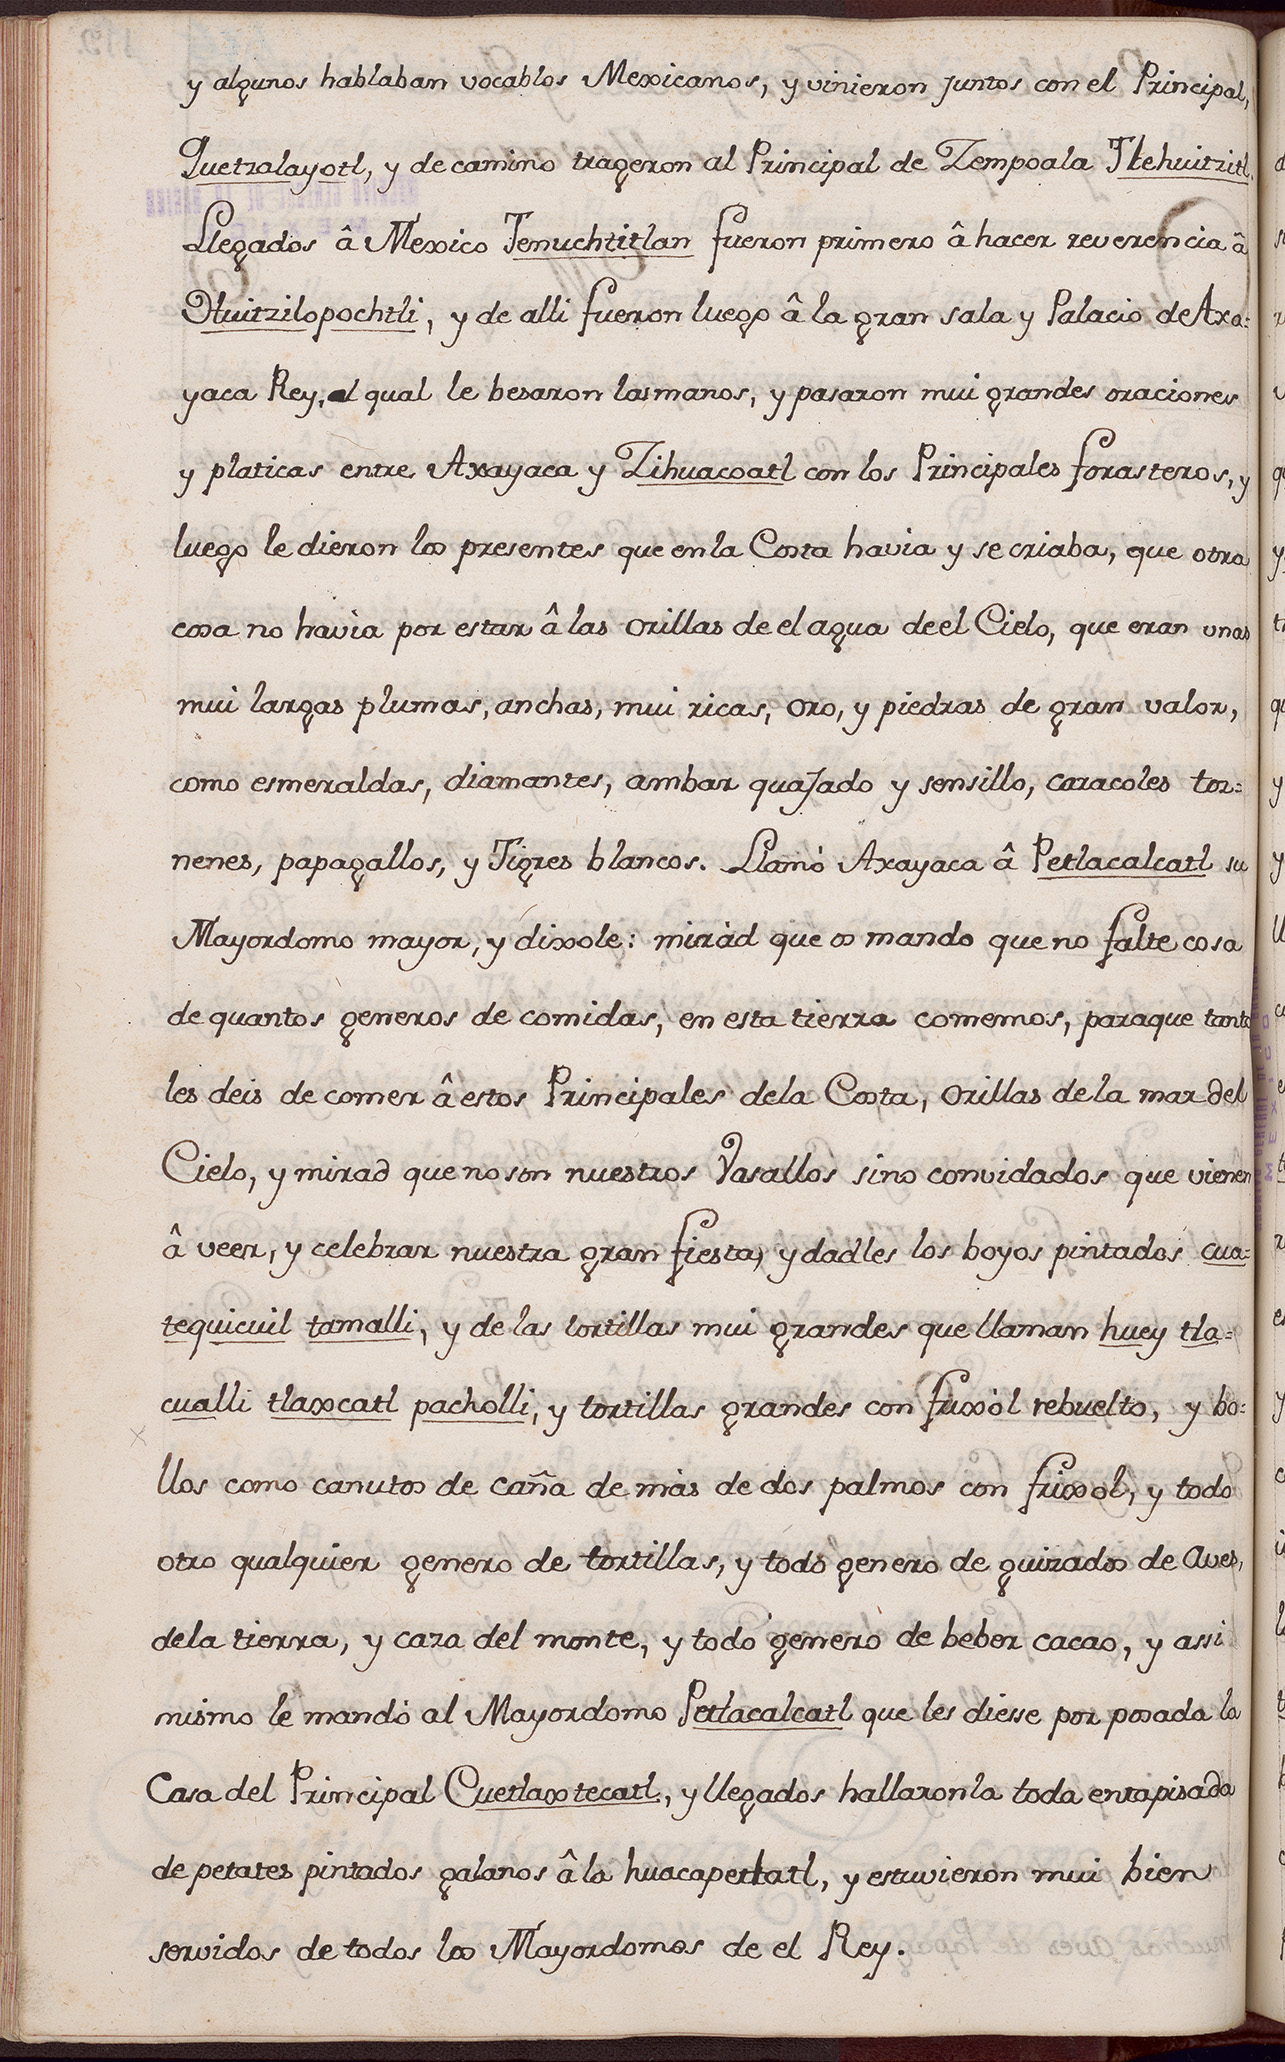 y algunos hablaban vocablos Mexicanos, y vinieron juntos con el Principal,
Quetzalayotl, y de camino trageron al Principal de Zempoala Tlehuitzitl.
Llegados â Mexico Tenuchtitlan fueron primero â hacer reverencia â
Huitzilopochtli, y de alli fueron luego â la gran sala y Palacio de Axa=
yaca Rey, al qual le besaron las manos, y pasaron mui grandes oraciones
y platicas entre Axayaca y Zihuacoatl con los Principales forasteros, y
luego le dieron los presentes que en la Costa havia y se criaba, que otra
cosa no havia por estar â las orillas de el agua de el Cielo, que eran unas
mui largas plumas, anchas, mui ricas, oro, y piedras de gran valor,
como esmeraldas, diamantes, ambar quajado y sensillo, caracoles tor=
nenes, papagallos, y Tigres blancos. Llamó Axayaca â Petlacalcatl su
Mayordomo mayor, y dixole: miràd que os mando que no falte cosa
de quantos generos de comidas, en esta tierra comemos, paraque tanto
les deis de comer â estos Principales dela Costa, orillas de la mar del
Cielo, y mirad que no son nuestros Vasallos sino convidados que vienen
â veer, y celebrar nuestra gran fiesta, y dadles los boyos pintados cua=
tequicuil tamalli, y de las tortillas mui grandes que llaman huey tla=
cualli tlaxcatl pacholli, y tortillas grandes con frixòl rebuelto, y bo=
llos como canutos de caña de màs de dos palmos con frixol, y todo
otro qualquier genero de tortillas, y todo genero de guizados de Aves,
dela tierra, y caza del monte, y todo genero de beber cacao, y assi
mismo le mandó al Mayordomo Petlacalcatl que les diesse por posada la
Casa del Principal Cuetlaxtecatl, y llegados hallaronla toda entapisada
de petates pintados galanos â la huacapetlatl, y estuvieron mui bien
servidos de todos los Mayordomos de el Rey.